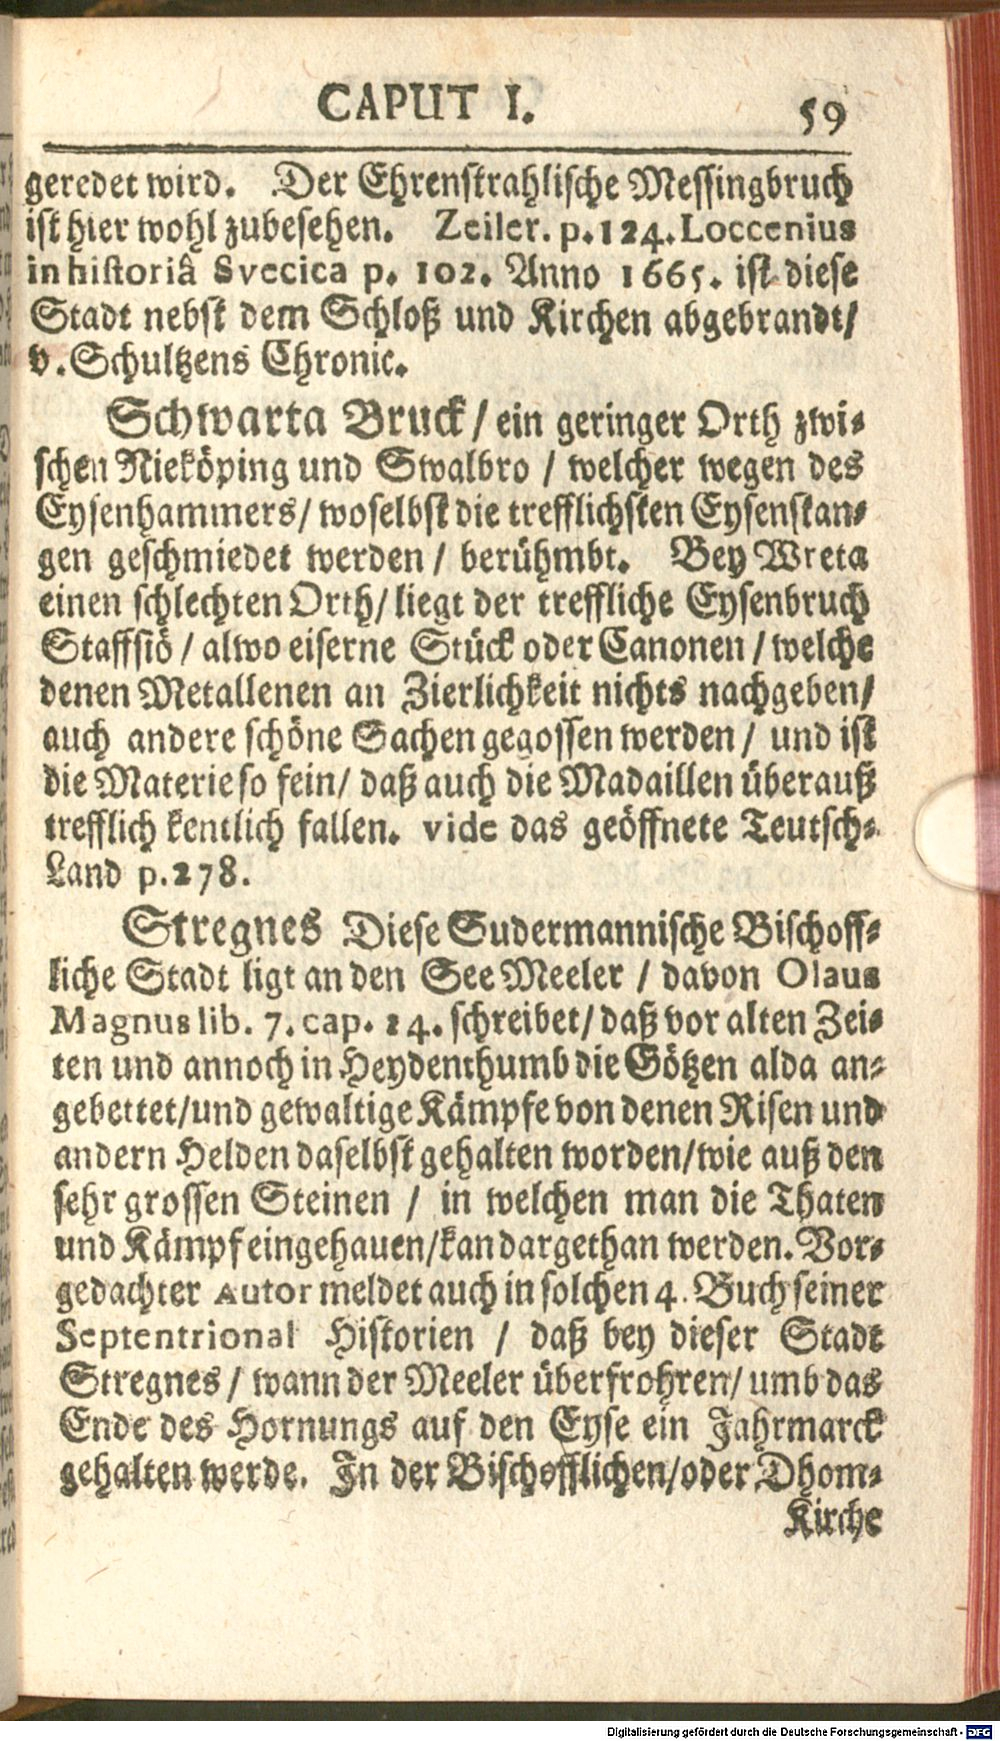 CAPUT I. 59
geredet wird. Der Ehrenstrahlische Messingbruch
ist hier wohl zubesehen. Zeiler. p. 124. Loccenius
in historiâ Svecica p. 102. Anno 1665. ist diese
Stadt nebst dem Schloß und Kirchen abgebrandt/
v. Schultzens Chronic.
Schwarta Bruck / ein geringer Orth zwi-
schen Nieköping und Swalbro / welcher wegen des
Eysenhammers/ woselbst die trefflichsten Eysenstan-
gen geschmiedet werden / berühmbt. Bey Wreta
einen schlechten Orth/ liegt der treffliche Eysenbruch
Staffsiö / alwo eiserne Stück oder Canonen / welche
denen Metallenen an Zierlichkeit nichts nachgeben/
auch andere schöne Sachen gegossen werden / und ist
die Materie so fein/ daß auch die Madaillen überauß
trefflich kentlich fallen. vide das geöffnete Teutsch-
Land p. 278.
Stregnes Diese Sudermannische Bischoff-
liche Stadt ligt an den See Meeler / davon Olaus
Magnus lib. 7. cap. 14. schreibet/ daß vor alten Zei-
ten und annoch in Heydenthumb die Götzen alda an-
gebettet/ und gewaltige Kämpfe von denen Risen und
andern Helden daselbst gehalten worden/ wie auß den
sehr grossen Steinen / in welchen man die Thaten
und Kämpf eingehauen/ kan dargethan werden. Vor-
gedachter Autor meldet auch in solchen 4. Buch seiner
Septentrional Historien / daß bey dieser Stadt
Stregnes / wann der Meeler überfrohren/ umb das
Ende des Hornungs auf den Eyse ein Jahrmarck
gehalten werde. In der Bischofflichen/ oder Dhom-
Kirche
Digitalisierung gefördert durch die Deutsche Forschungsgemeinschaft - DFG